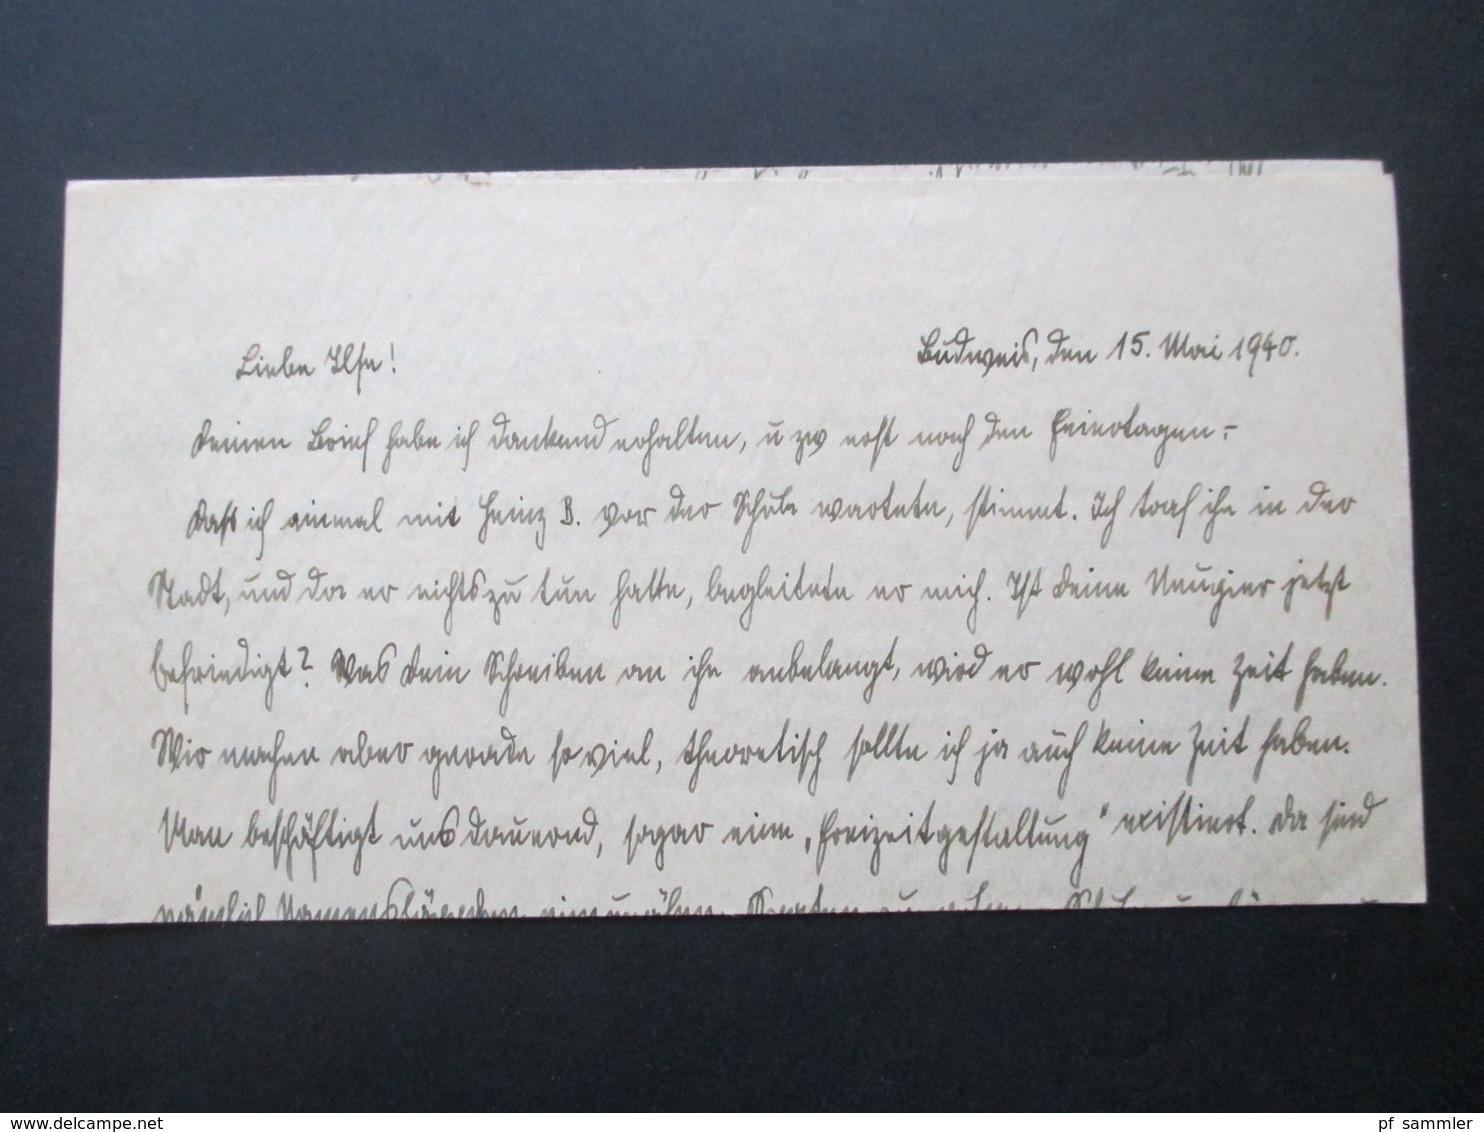 Budweis, den 15. Mai 1940.
Liebe Ilse!
Deinen Brief habe ich dankend erhalten, u zw erst nach den Feiertagen.-
Daß ich einmal mit Heinz B. vor der Schule wartete, stimmt. Ich traf ihn in der
Stadt, und da er nichts zu tun hatte, begleitete er mich. Ist Deine Neugier jetzt
befriedigt? Was Dein Schreiben an ihn anbelangt, wird er wohl keine Zeit haben.
Wir machen aber gerade so viel, theoretisch sollte ich ja auch keine Zeit haben.
Man beschäftigt uns dauernd, sogar eine „Freizeitgestaltung" existiert. Da sind
nämlich
delcampe.net
pf_sammler